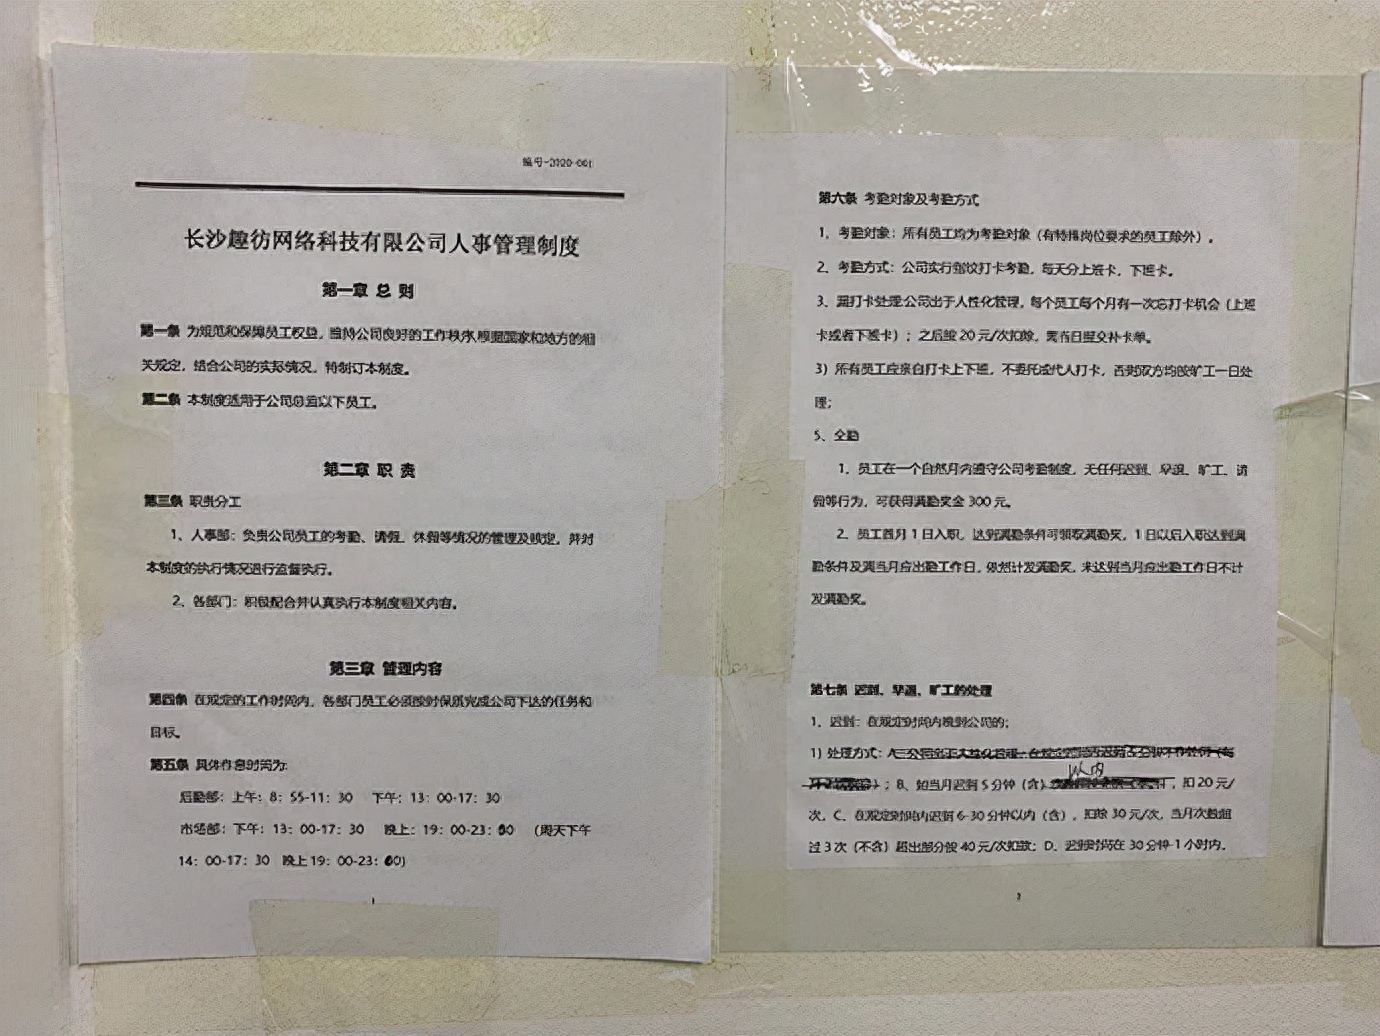 编号-2020-001
长沙趣彷网络科技有限公司人事管理制度
第一章 总 则
第一条 为规范和保障员工权益，维持公司良好的工作秩序,根据国家和地方的相
关规定，结合公司的实际情况，特制订本制度。
第二条 本制度适用于公司总监以下员工。
第二章 职 责
第三条 职责分工
1、人事部：负责公司员工的考勤、请假、休假等情况的管理及核定，并对
本制度的执行情况进行监督执行。
2、各部门：积极配合并认真执行本制度相关内容。
第三章 管理内容
第四条 在规定的工作时间内，各部门员工必须按时保质完成公司下达的任务和
目标。
第五条 具体作息时间为:
后勤部：上午：8：55-11：30 下午：13：00-17：30
市场部：下午：13：00-17：30 晚上：19：00-23：00 （周天下午
14：00-17：30 晚上19：00-23：00）
1
第六条 考勤对象及考勤方式
1、考勤对象：所有员工均为考勤对象（有特殊岗位要求的员工除外）。
2、考勤方式：公司实行指纹打卡考勤，每天分上班卡，下班卡。
3、漏打卡处理:公司出于人性化管理，每个员工每个月有一次忘打卡机会（上班
卡或者下班卡）；之后按 20 元/次扣除，需当日提交补卡单。
3）所有员工应亲自打卡上下班，不委托或代人打卡，否则双方均按旷工一日处
理；
5、全勤
1、员工在一个自然月内遵守公司考勤制度，无任何迟到、早退、旷工、请
假等行为，可获得满勤奖金 300 元。
2、员工首月 1 日入职，达到满勤条件可领取满勤奖，1 日以后入职达到满
勤条件及满当月应出勤工作日，依然计发满勤奖，未达到当月应出勤工作日不计
发满勤奖。
第七条 迟到、早退、旷工的处理
1、迟到：在规定时间内晚到公司的；
1）处理方式：
以内
；B、如当月迟到 5 分钟（含），扣 20 元/
次，C、在规定时间内迟到 6-30 分钟以内（含），扣除 30 元/次，当月次数超
过 3 次（不含）超出部分按 40 元/次扣款；D、迟到时间在 30 分钟-1 小时内，
2